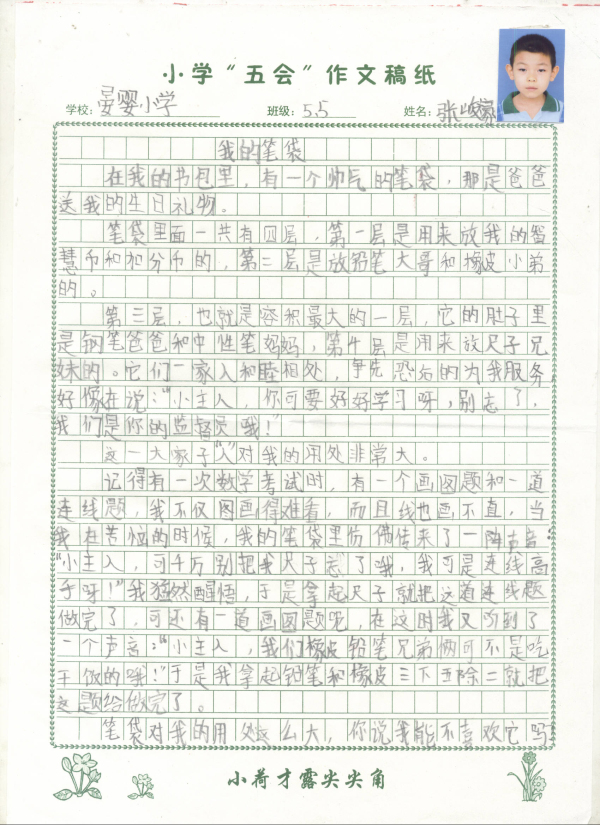 小学“五会”作文稿纸
学校: 晏婴小学 班级: 5.5 姓名: 张峻豪
我的笔袋
在我的书包里，有一个帅气的笔袋，那是爸爸
送我的生日礼物。
笔袋里面一共有四层，第一层是用来放我的智
慧币和扣分币的，第二层是放铅笔大哥和橡皮小弟
的。
第三层，也就是容积最大的一层，它的肚子里
是钢笔爸爸和中性笔妈妈，第4层是用来放尺子兄
妹的。它们一家人和睦相处，争先恐后的为我服务，
好像在说：“小主人，你可要好好学习呀，别忘了，
我们是你的监督员哦！”
这一大家子“人”对我的用处非常大。
记得有一次数学考试时，有一个画图题和一道
连线题，我不仅图画得难看，而且线也画不直，当
我在苦恼的时候，我的笔袋里仿佛传来了一阵声音：
“小主人，可千万别把我尺子忘了哦，我可是连线高
手呀！”我猛然醒悟，于是拿起尺子就把这道连线题
做完了，可还有一道画图题呢，在这时我又听到了
一个声音：“小主人，我们橡皮铅笔兄弟俩可不是吃
干饭的哦！”于是我拿起铅笔和橡皮三下五除二就把
这题给做完了。
笔袋对我的用处这么大，你说我能不喜欢它吗？
小荷才露尖尖角